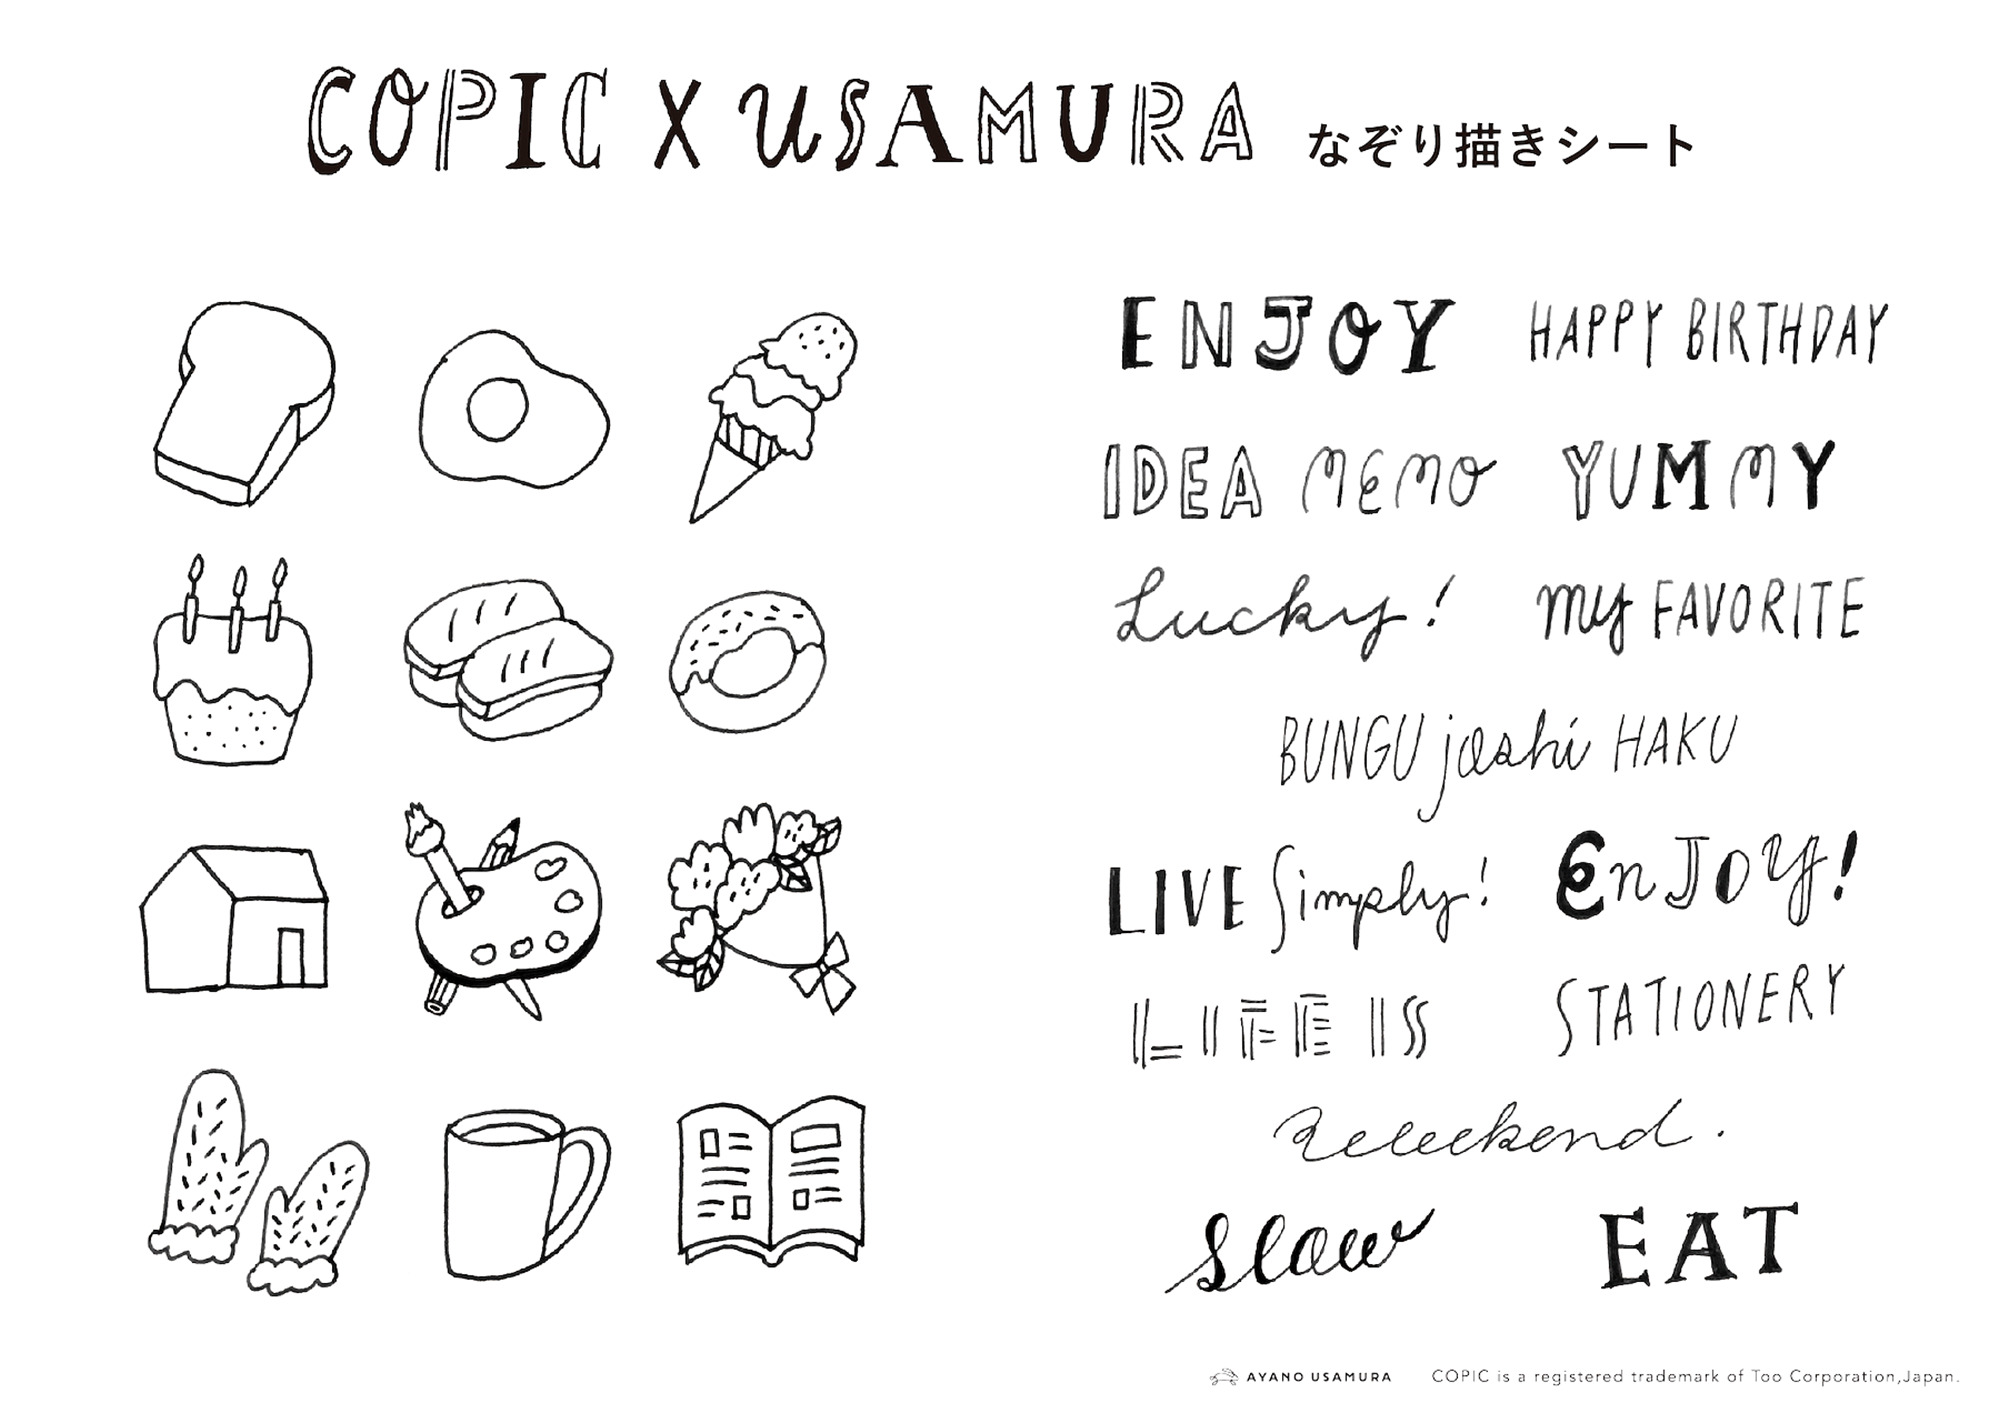 COPIC X USAMURA なぞり描きシート
ENJOY HAPPY BIRTHDAY
IDEA MEMO YUMMY
Lucky! my FAVORITE
BUNGU joshi HAKU
LIVE Simply! EnJoy!
LIFE IS STATIONERY
Weekend.
slow EAT
AYANO USAMURA COPIC is a registered trademark of Too Corporation,Japan.